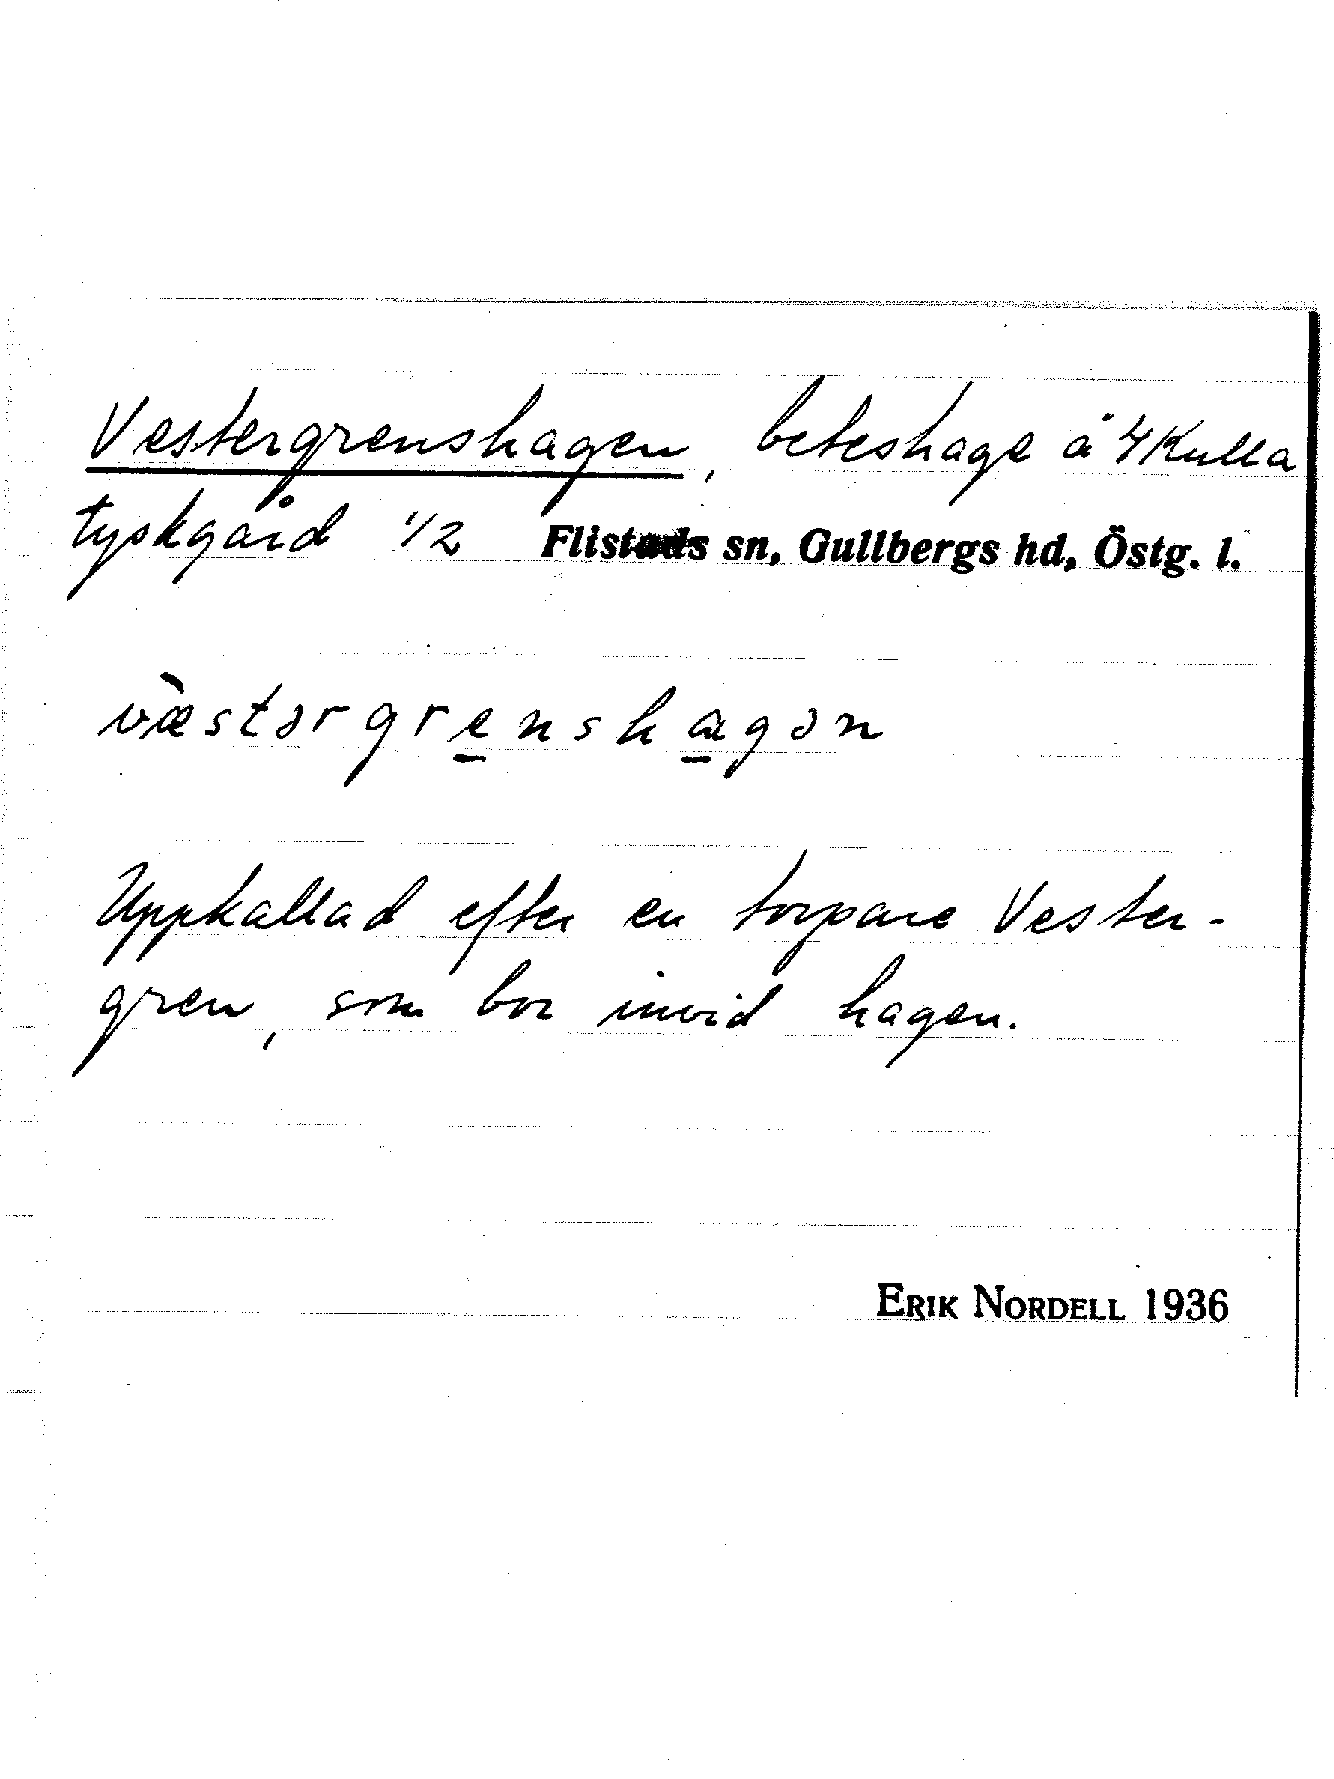 Vestergrenshagen, beteshage å 4 Kulla
tyskgård 1/2 Flistads sn, Gullbergs hd, Östg. l.
væ̀stərgre̲nsha̲gən
Uppkallad efter en torpare Vester-
gren, som bor invid hagen.
ERIK NORDELL 1936